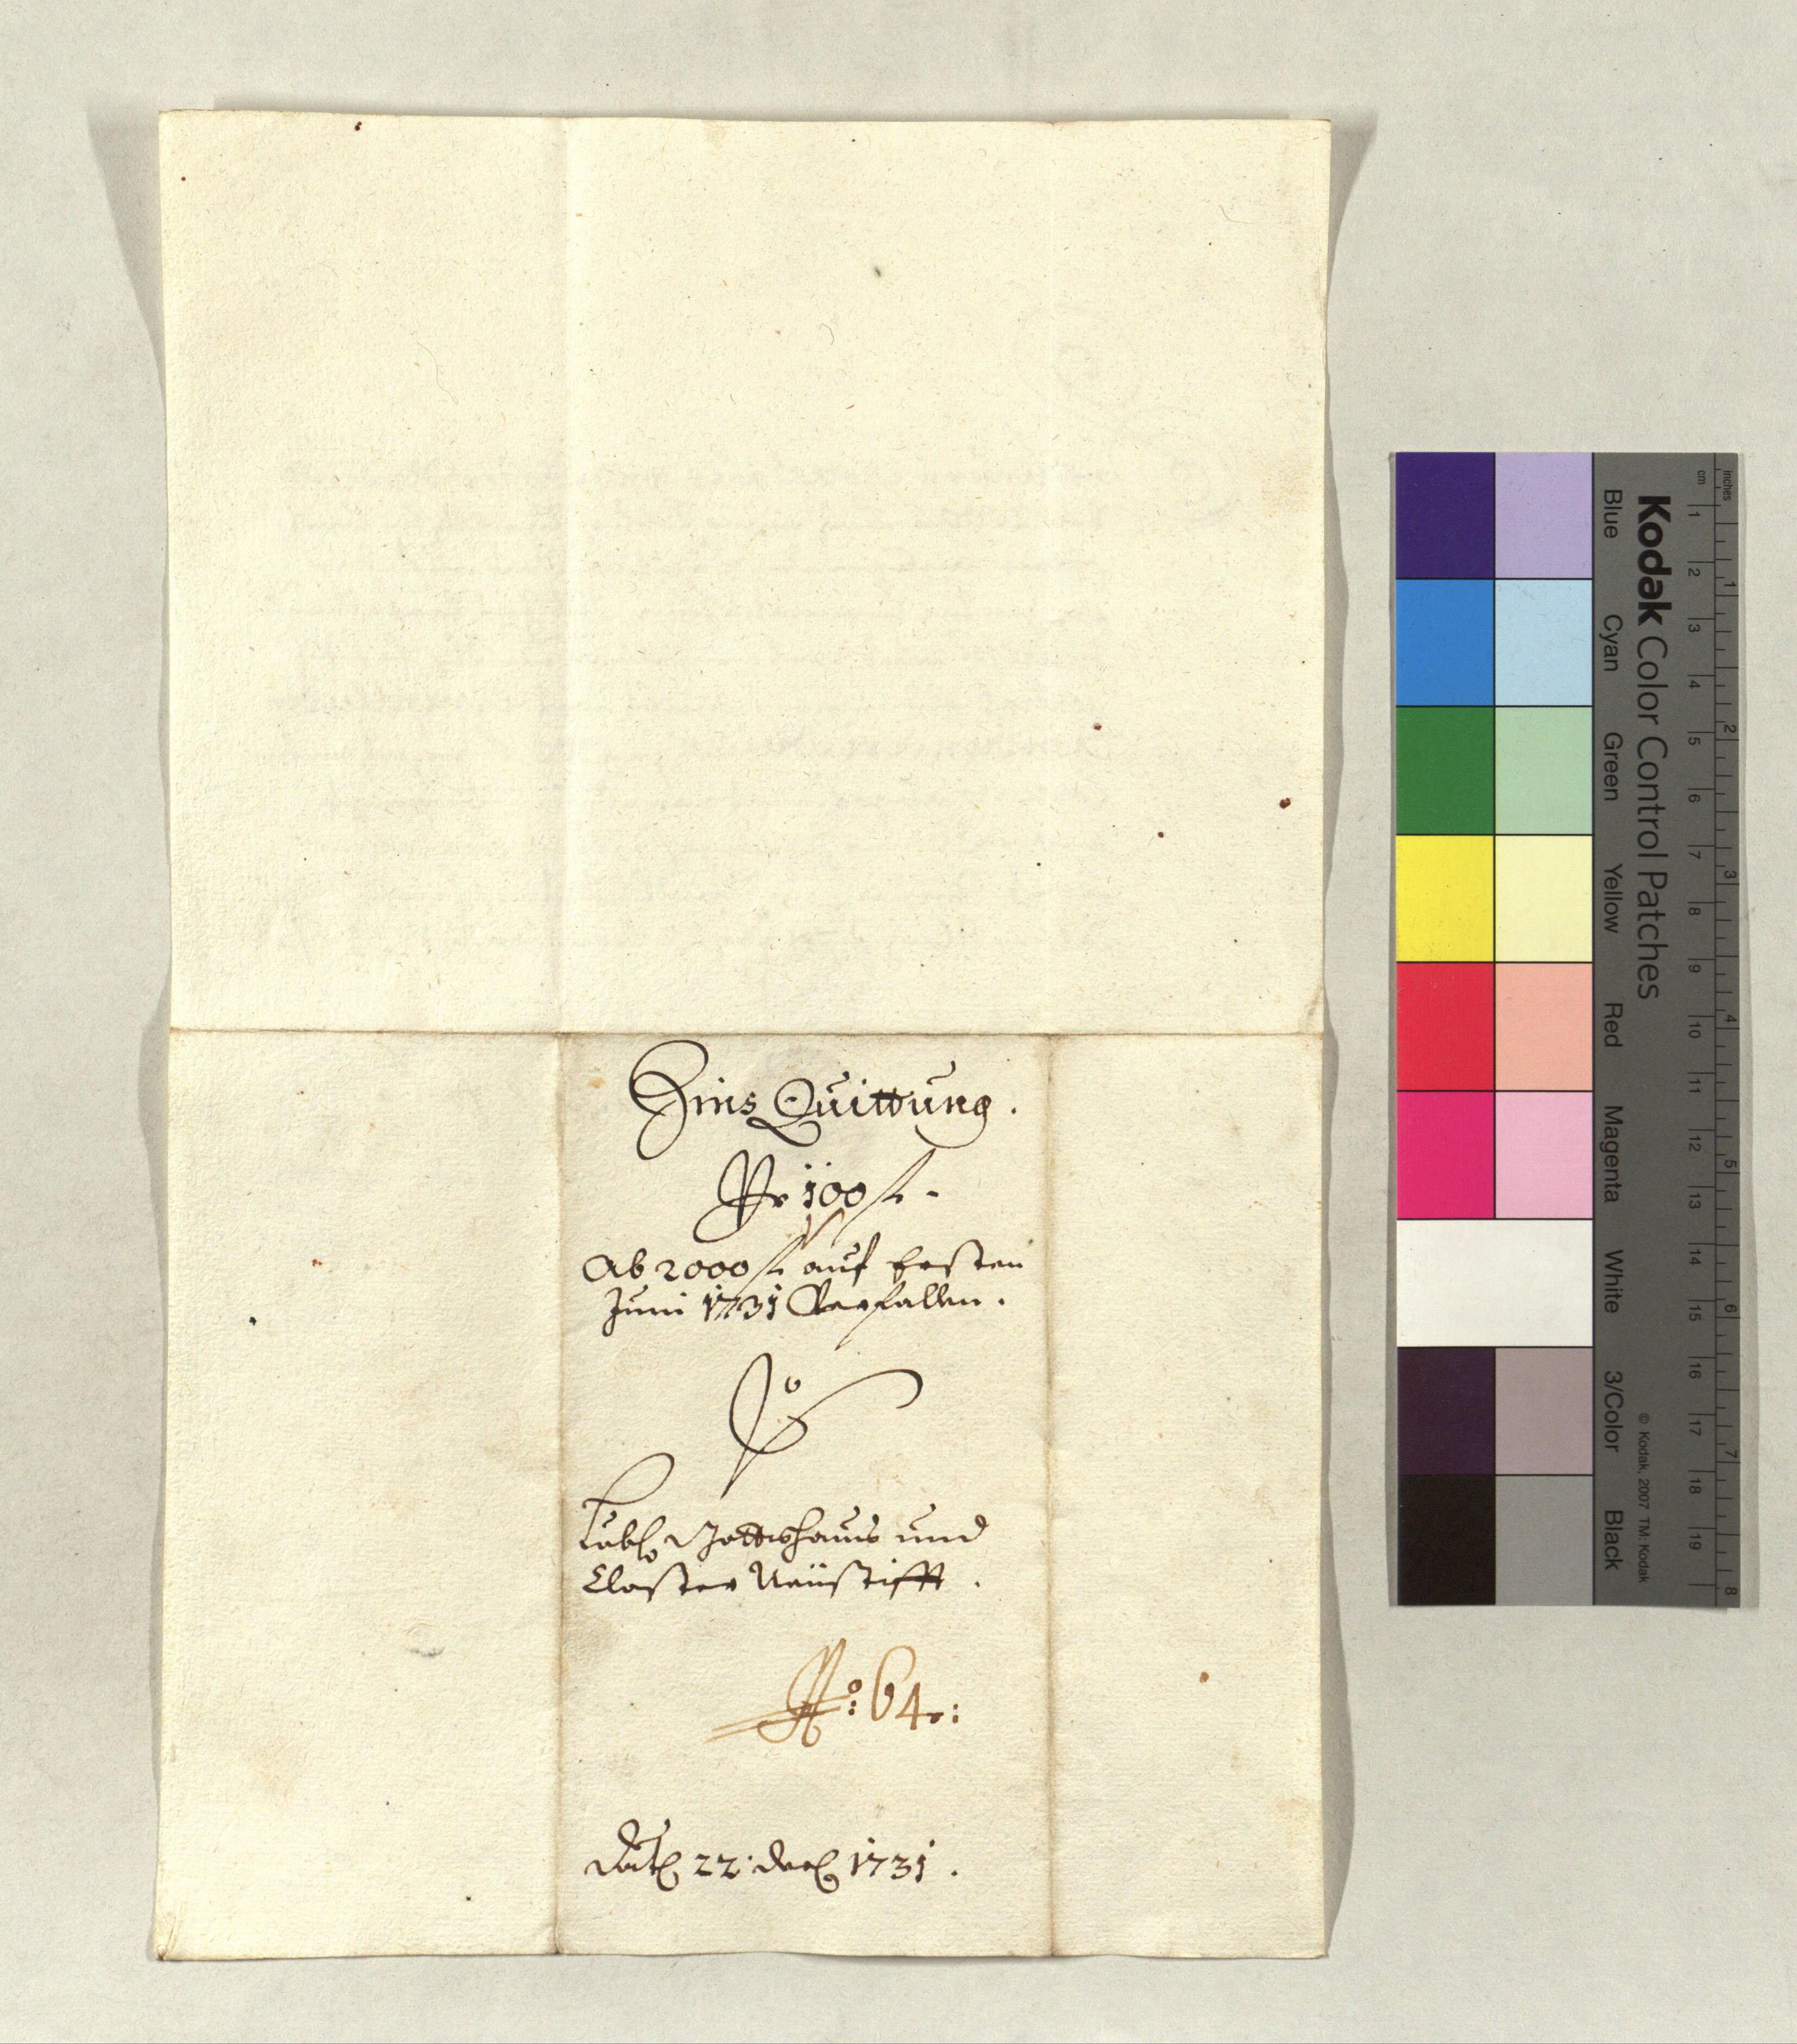 Zins Quittung.
Pr 100 f.
Ab 2000 f auf Ersten
Juni 1731 Verfallen.
Löbl. Gottshaus und
Closter Neüstifft.
No: 64.:
Dat. 22. Dec. 1731.
Kodak Color Control Patches
Blue Cyan Green Yellow Red Magenta White 3/Color Black
© Kodak, 2007 TM: Kodak
inches 1 2 3 4 5 6 7 8
cm 1 2 3 4 5 6 7 8 9 10 11 12 13 14 15 16 17 18 19